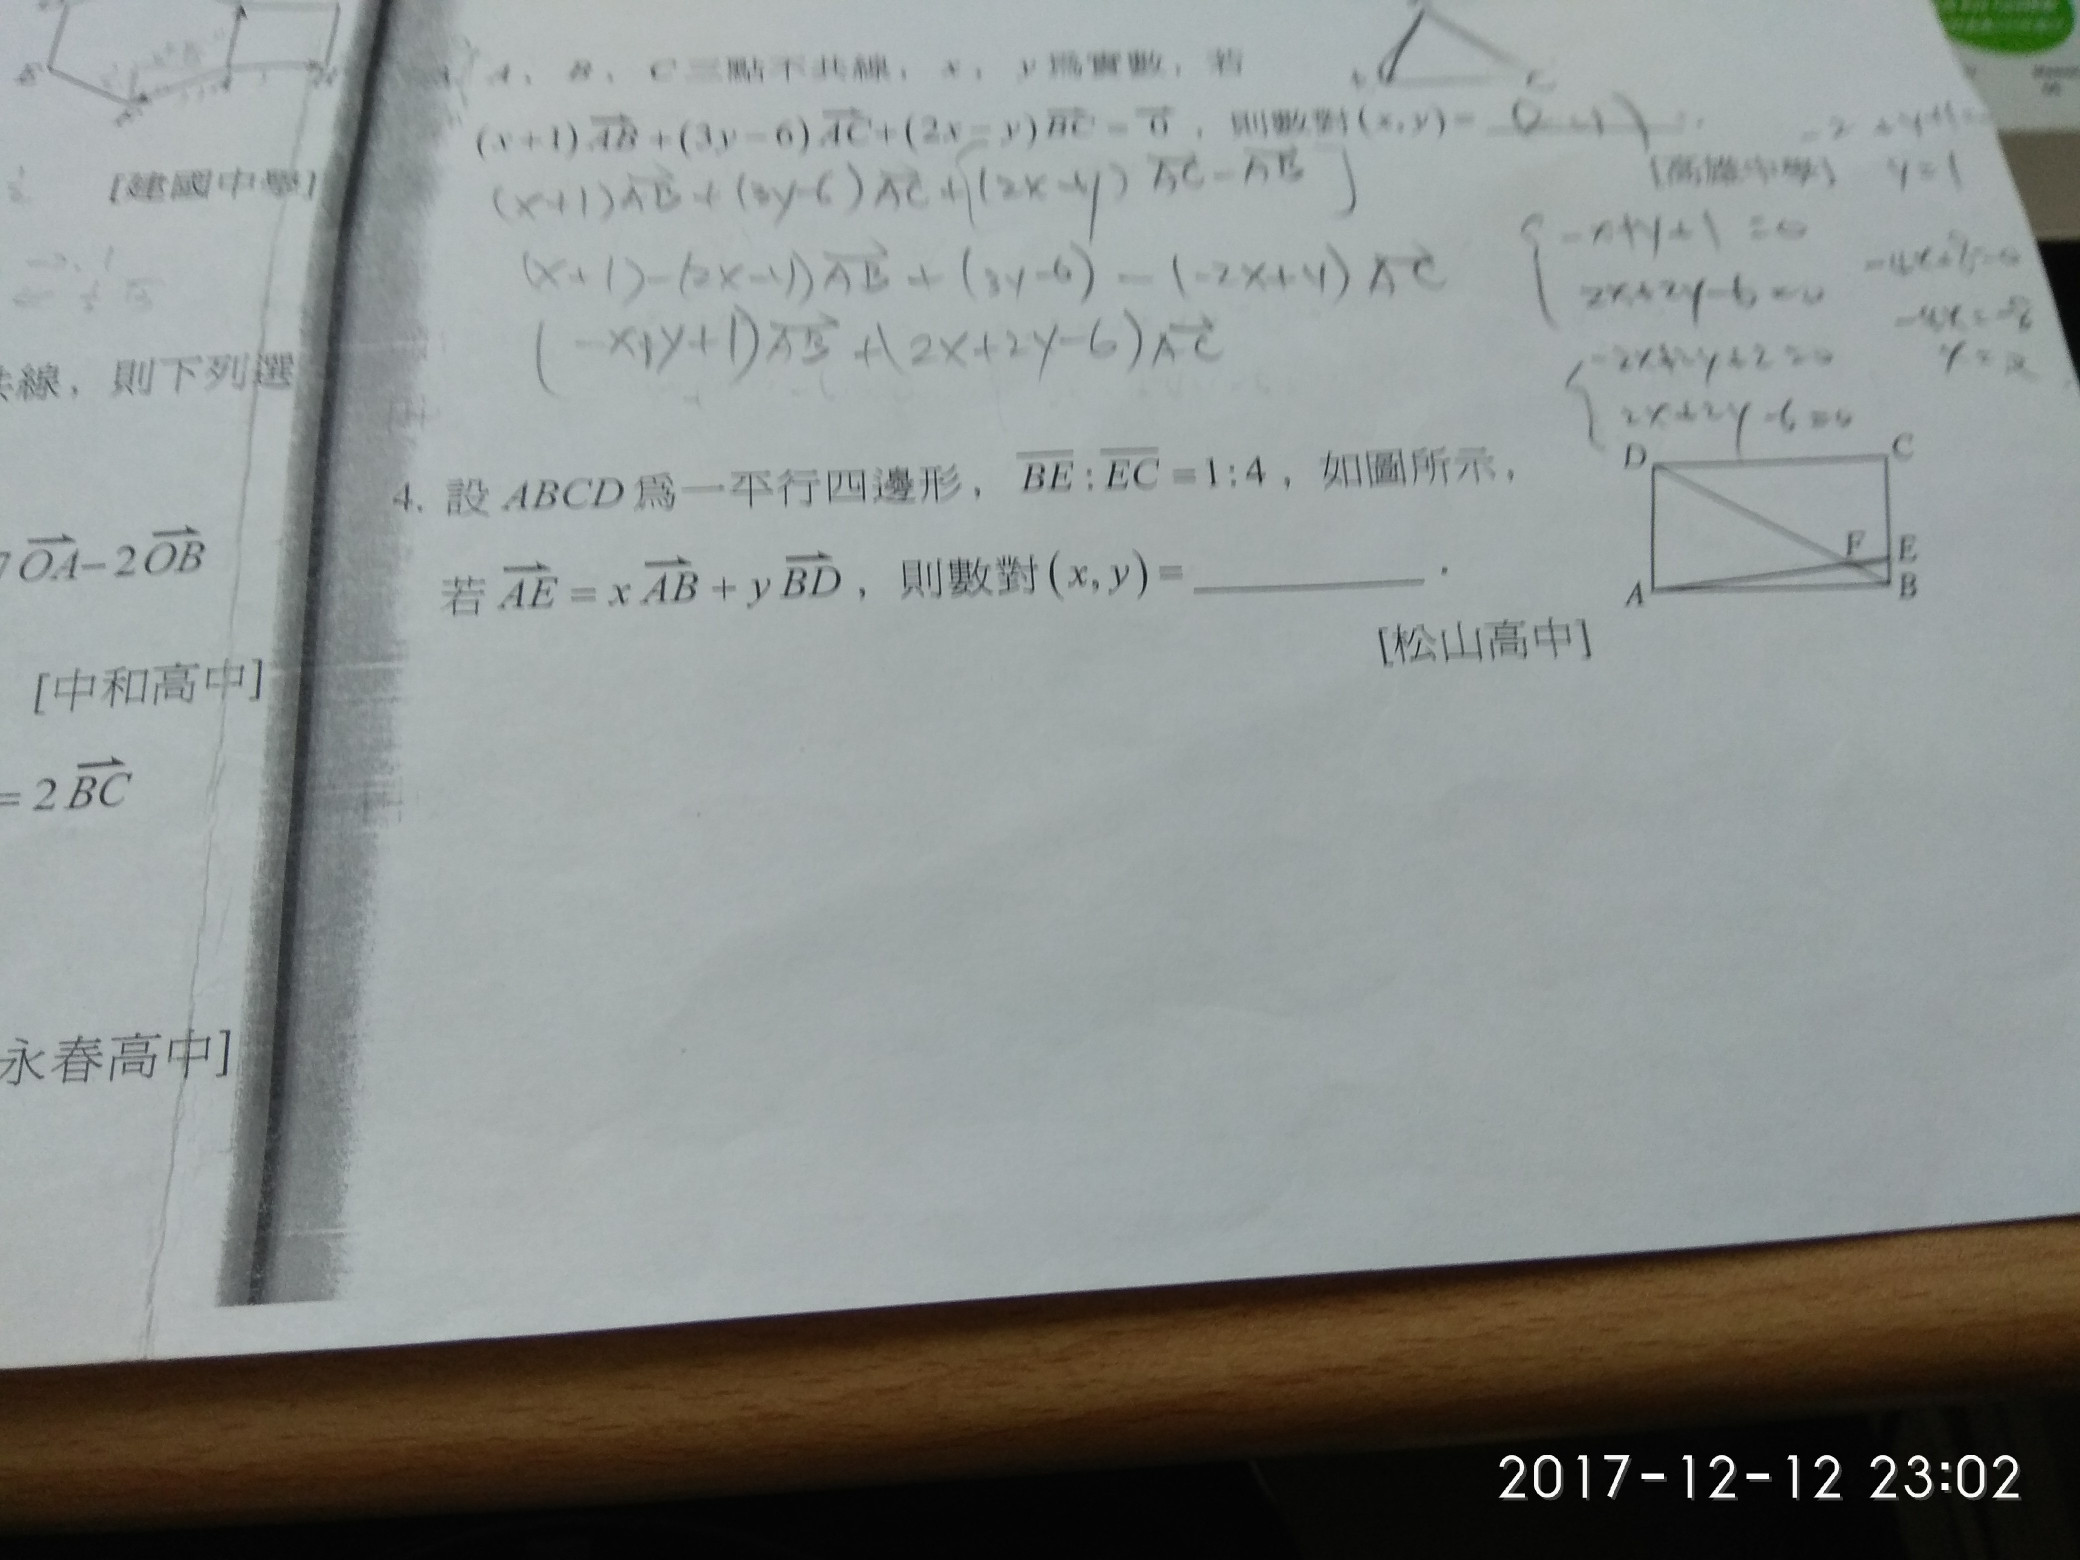 [建國中學]
線，則下列選
7OA-2OB
[中和高中]
=2BC
永春高中]
A、B、C三點不共線，x，y爲實數，若
(x+1)AB+(3y-6)AC+(2x-y)BC=0，則數對(x,y)=
[高雄中學] y=1
(x+1)AB+(3y-6)AC+[(2x-y) AC-AB]
(x+1)-(2x-y)AB+(3y-6)-(-2x+y)AC
(-x+y+1)AB+(2x+2y-6)AC
-x+y+1=0
2x+2y-6=0
-2x+2y+2=0
2x+2y-6=0
4. 設ABCD爲一平行四邊形，BE:EC=1:4，如圖所示，
若AE=xAB+yBD，則數對(x,y)=________.
[松山高中]
D C
F E
A B
2017-12-12 23:02